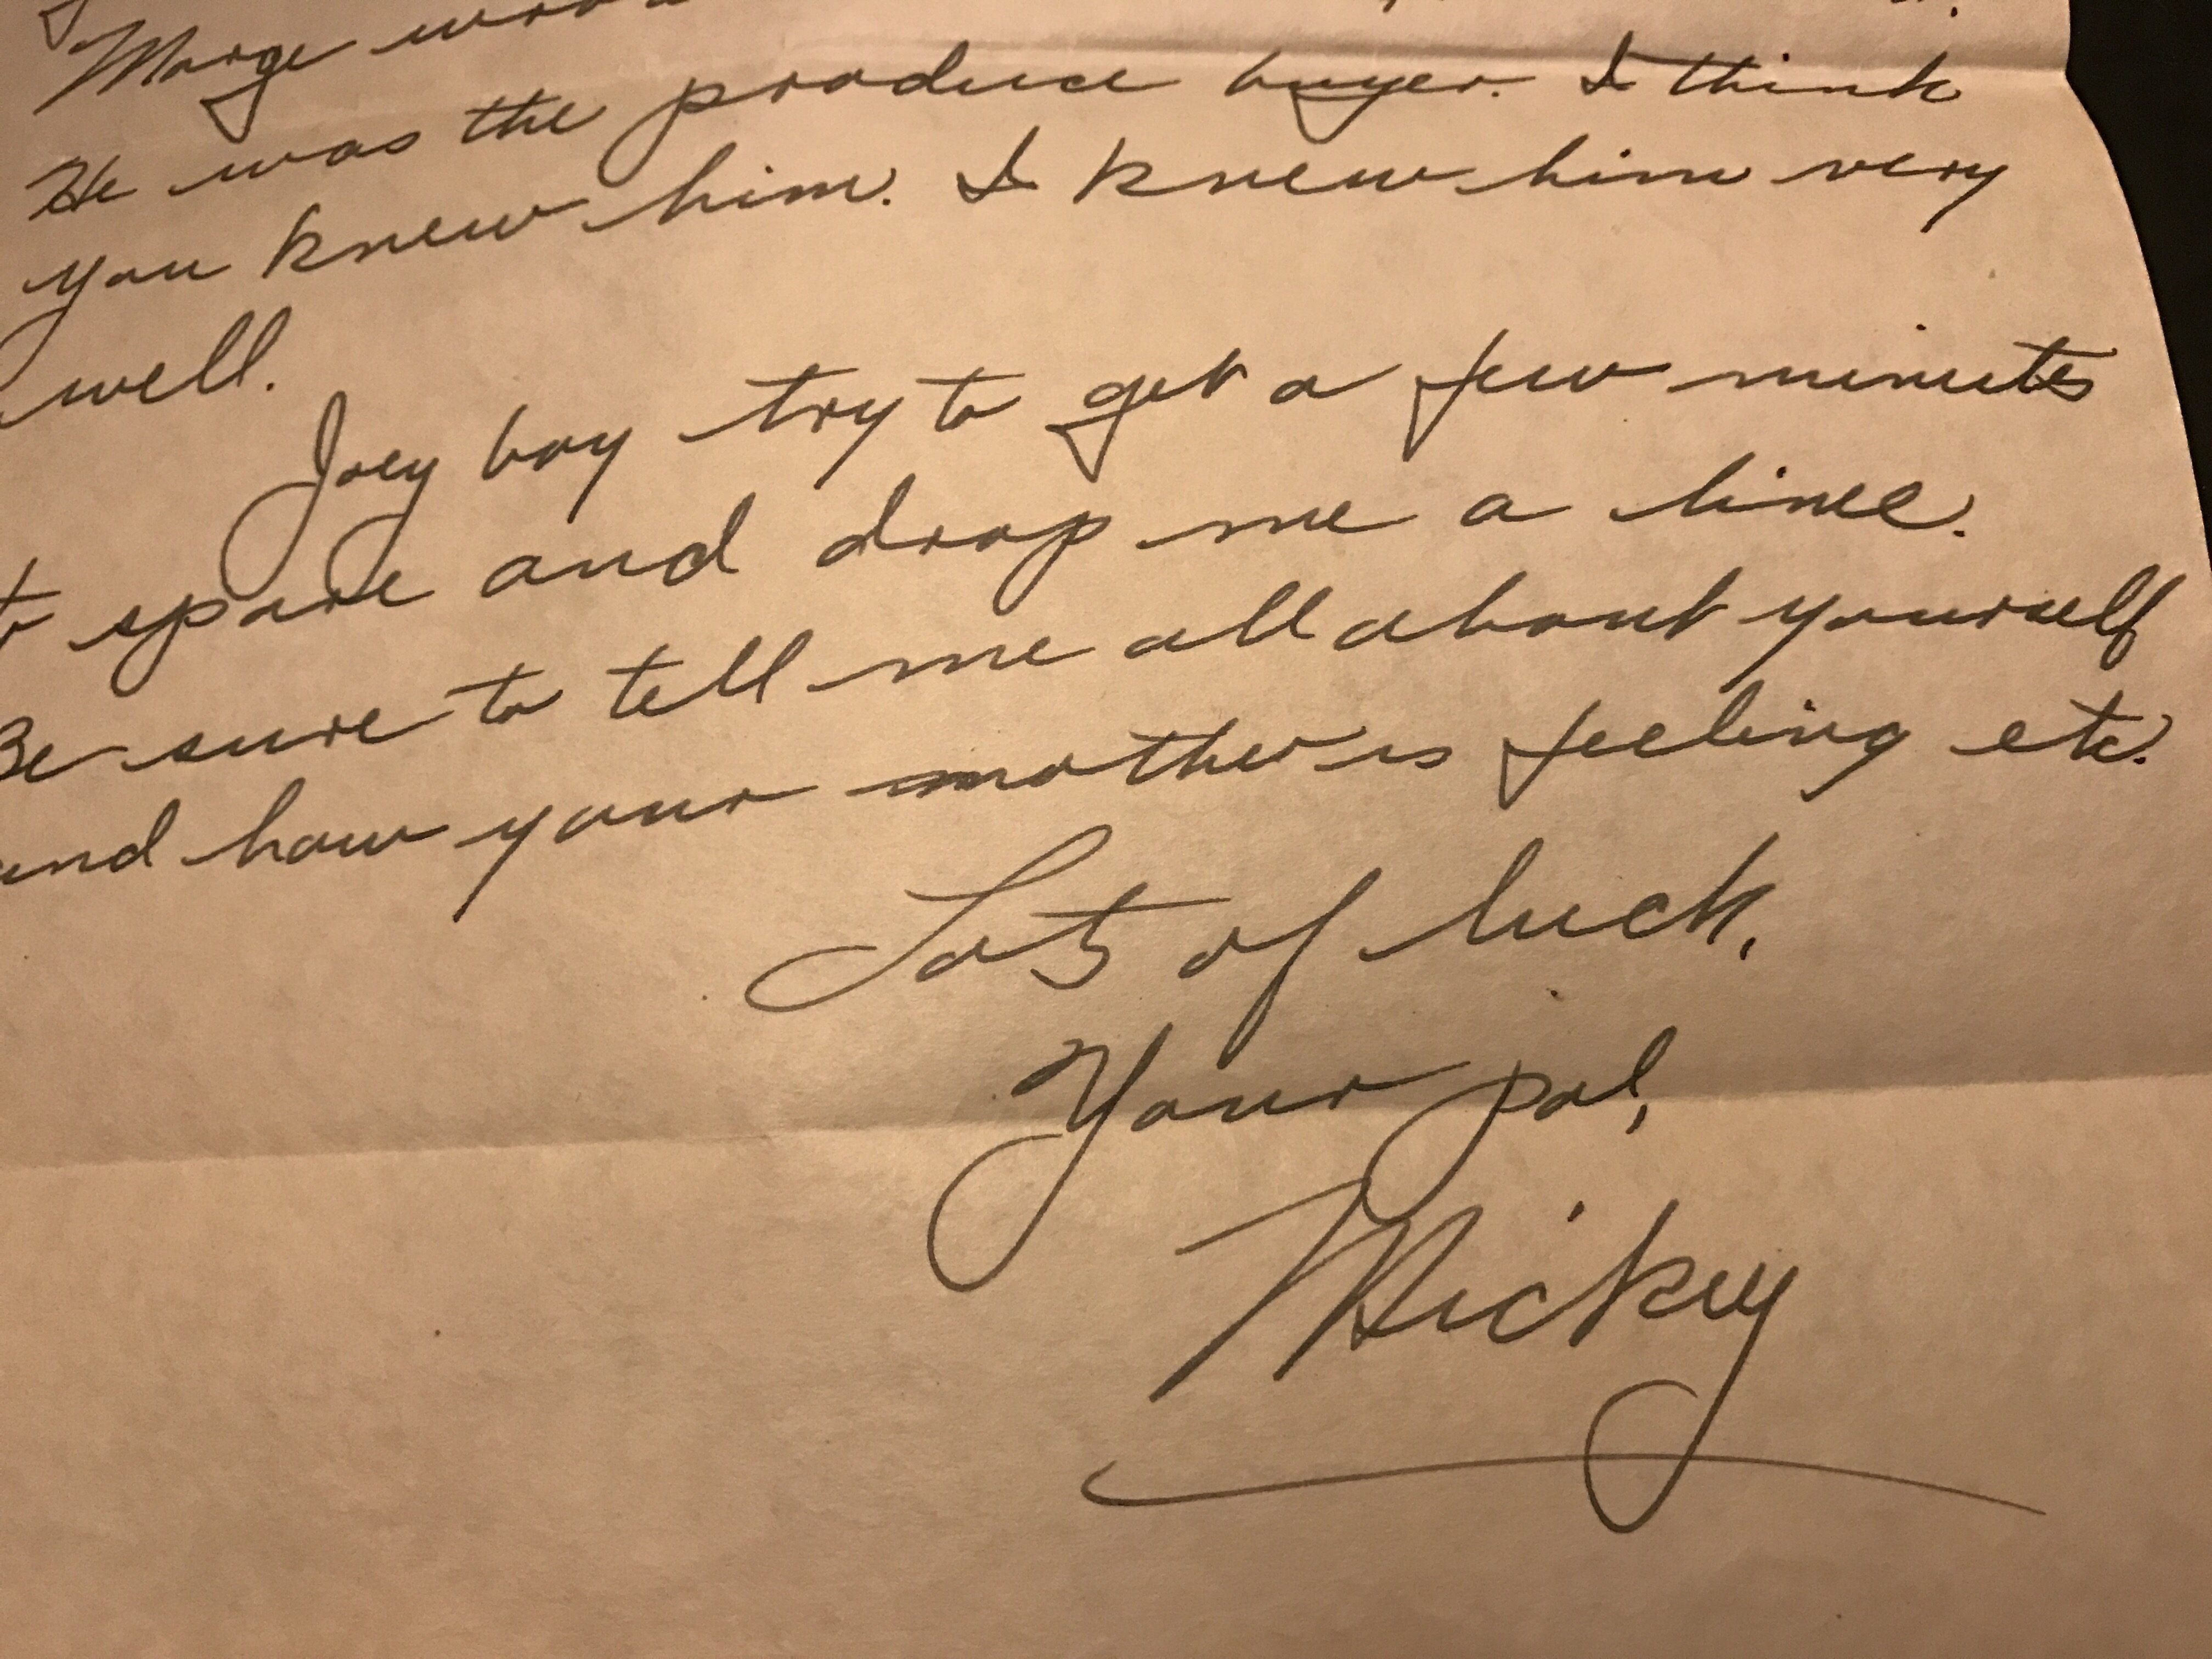 Marge
He was the produce buyer. I think
you knew him. I knew him very
well.
Joey boy try to get a few minutes
to spare and drop me a line.
Be sure to tell me all about yourself
and how your mother is feeling etc.
Lots of luck,
Your pal,
Mickey